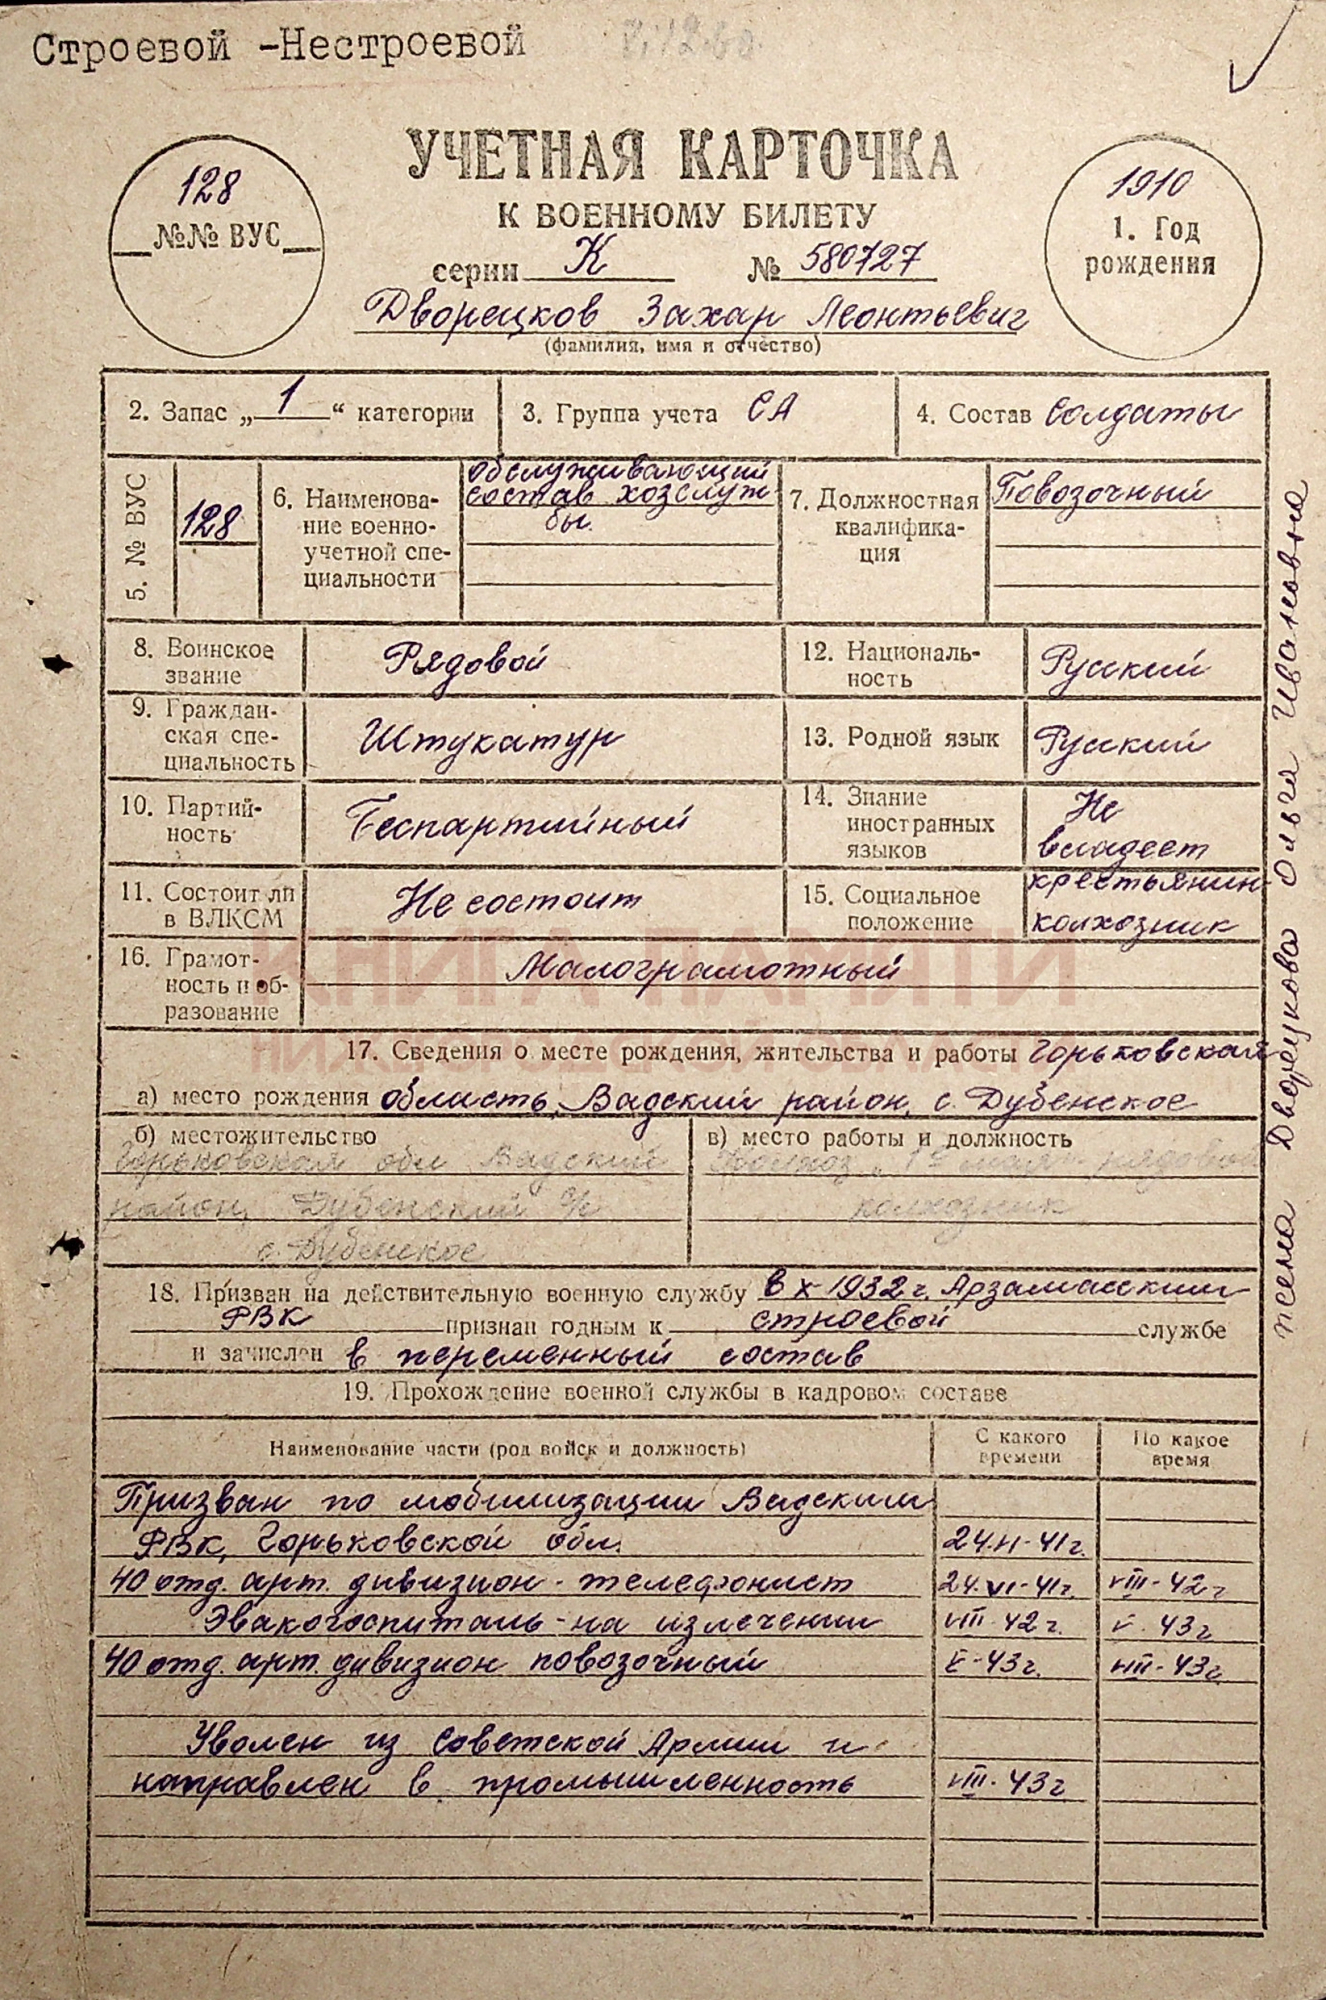 Строевой -Нестроевой
УЧЕТНАЯ КАРТОЧКА
К ВОЕННОМУ БИЛЕТУ
серии К № 580727
128
№№ ВУС
1910
1. Год
рождения
Дворецков Захар Леонтьевич
(фамилия, имя и отчество)
2. Запас „1“ категории
3. Группа учета СА
4. Состав Солдаты
5. № ВУС
128
6. Наименова-
ние военно-
учетной спе-
циальности
обслуживающий
состав хозслуж
бы.
7. Должностная
квалифика-
ция
Повозочный
8. Воинское
звание
Рядовой
12. Националь-
ность
Русский
9. Граждан-
ская спе-
циальность
Штукатур
13. Родной язык
Русский
10. Партий-
ность
Беспартийный
14. Знание
иностранных
языков
Не
владеет
11. Состоит ли
в ВЛКСМ
Не состоит
15. Социальное
положение
крестьянин-
колхозник
16. Грамот-
ность и об-
разование
Малограмотный
КНИГА ПАМЯТИ
НИЖЕГОРОДСКОЙ ОБЛАСТИ
17. Сведения о месте рождения, жительства и работы Горьковская
а) место рождения область, Вадский район, с. Дубенское
б) местожительство
Горьковская обл Вадский
район, Дубенский с/с
с. Дубенское
в) место работы и должность
Колхоз „1е мая" рядовой
колхозник
18. Призван на действительную военную службу в X-1932 г. Арзамасским
РВК признан годным к строевой службе
и зачислен в переменный состав
19. Прохождение военной службы в кадровом составе
Наименование части (род войск и должность)
С какого
времени
По какое
время
Призван по мобилизации Вадским
РВК, Горьковской обл. 24.II-41г.
40 отд. арт. дивизион - телефонист 24.VI-41г. VIII-42г
Эвакогоспиталь - на излечении VIII-42г. V-43г
40 отд. арт. дивизион повозочный V-43г. VIII-43г
Уволен из Советской Армии и
направлен в промышленность VIII-43г
жена Дворецкова Ольга Ивановна